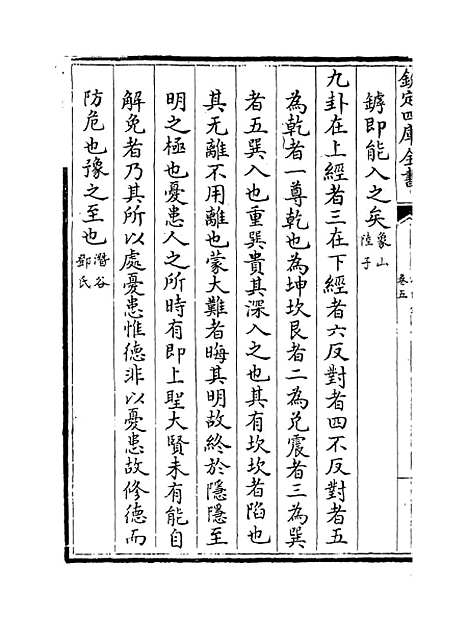 欽定四庫全書
卷五
鏬即能入之矣象山陸子
九卦在上經者三在下經者六反對者四不反對者五
為乾者一尊乾也為坤坎艮者二為兑震者三為巽
者五巽入也重巽貴其深入之也其有坎坎者陷也
其无離不用離也蒙大難者晦其明故終於隱隱至
明之極也憂患人之所時有即上聖大賢未有能自
解免者乃其所以處憂患惟德非以憂患故修德而
防危也豫之至也潛谷鄧氏